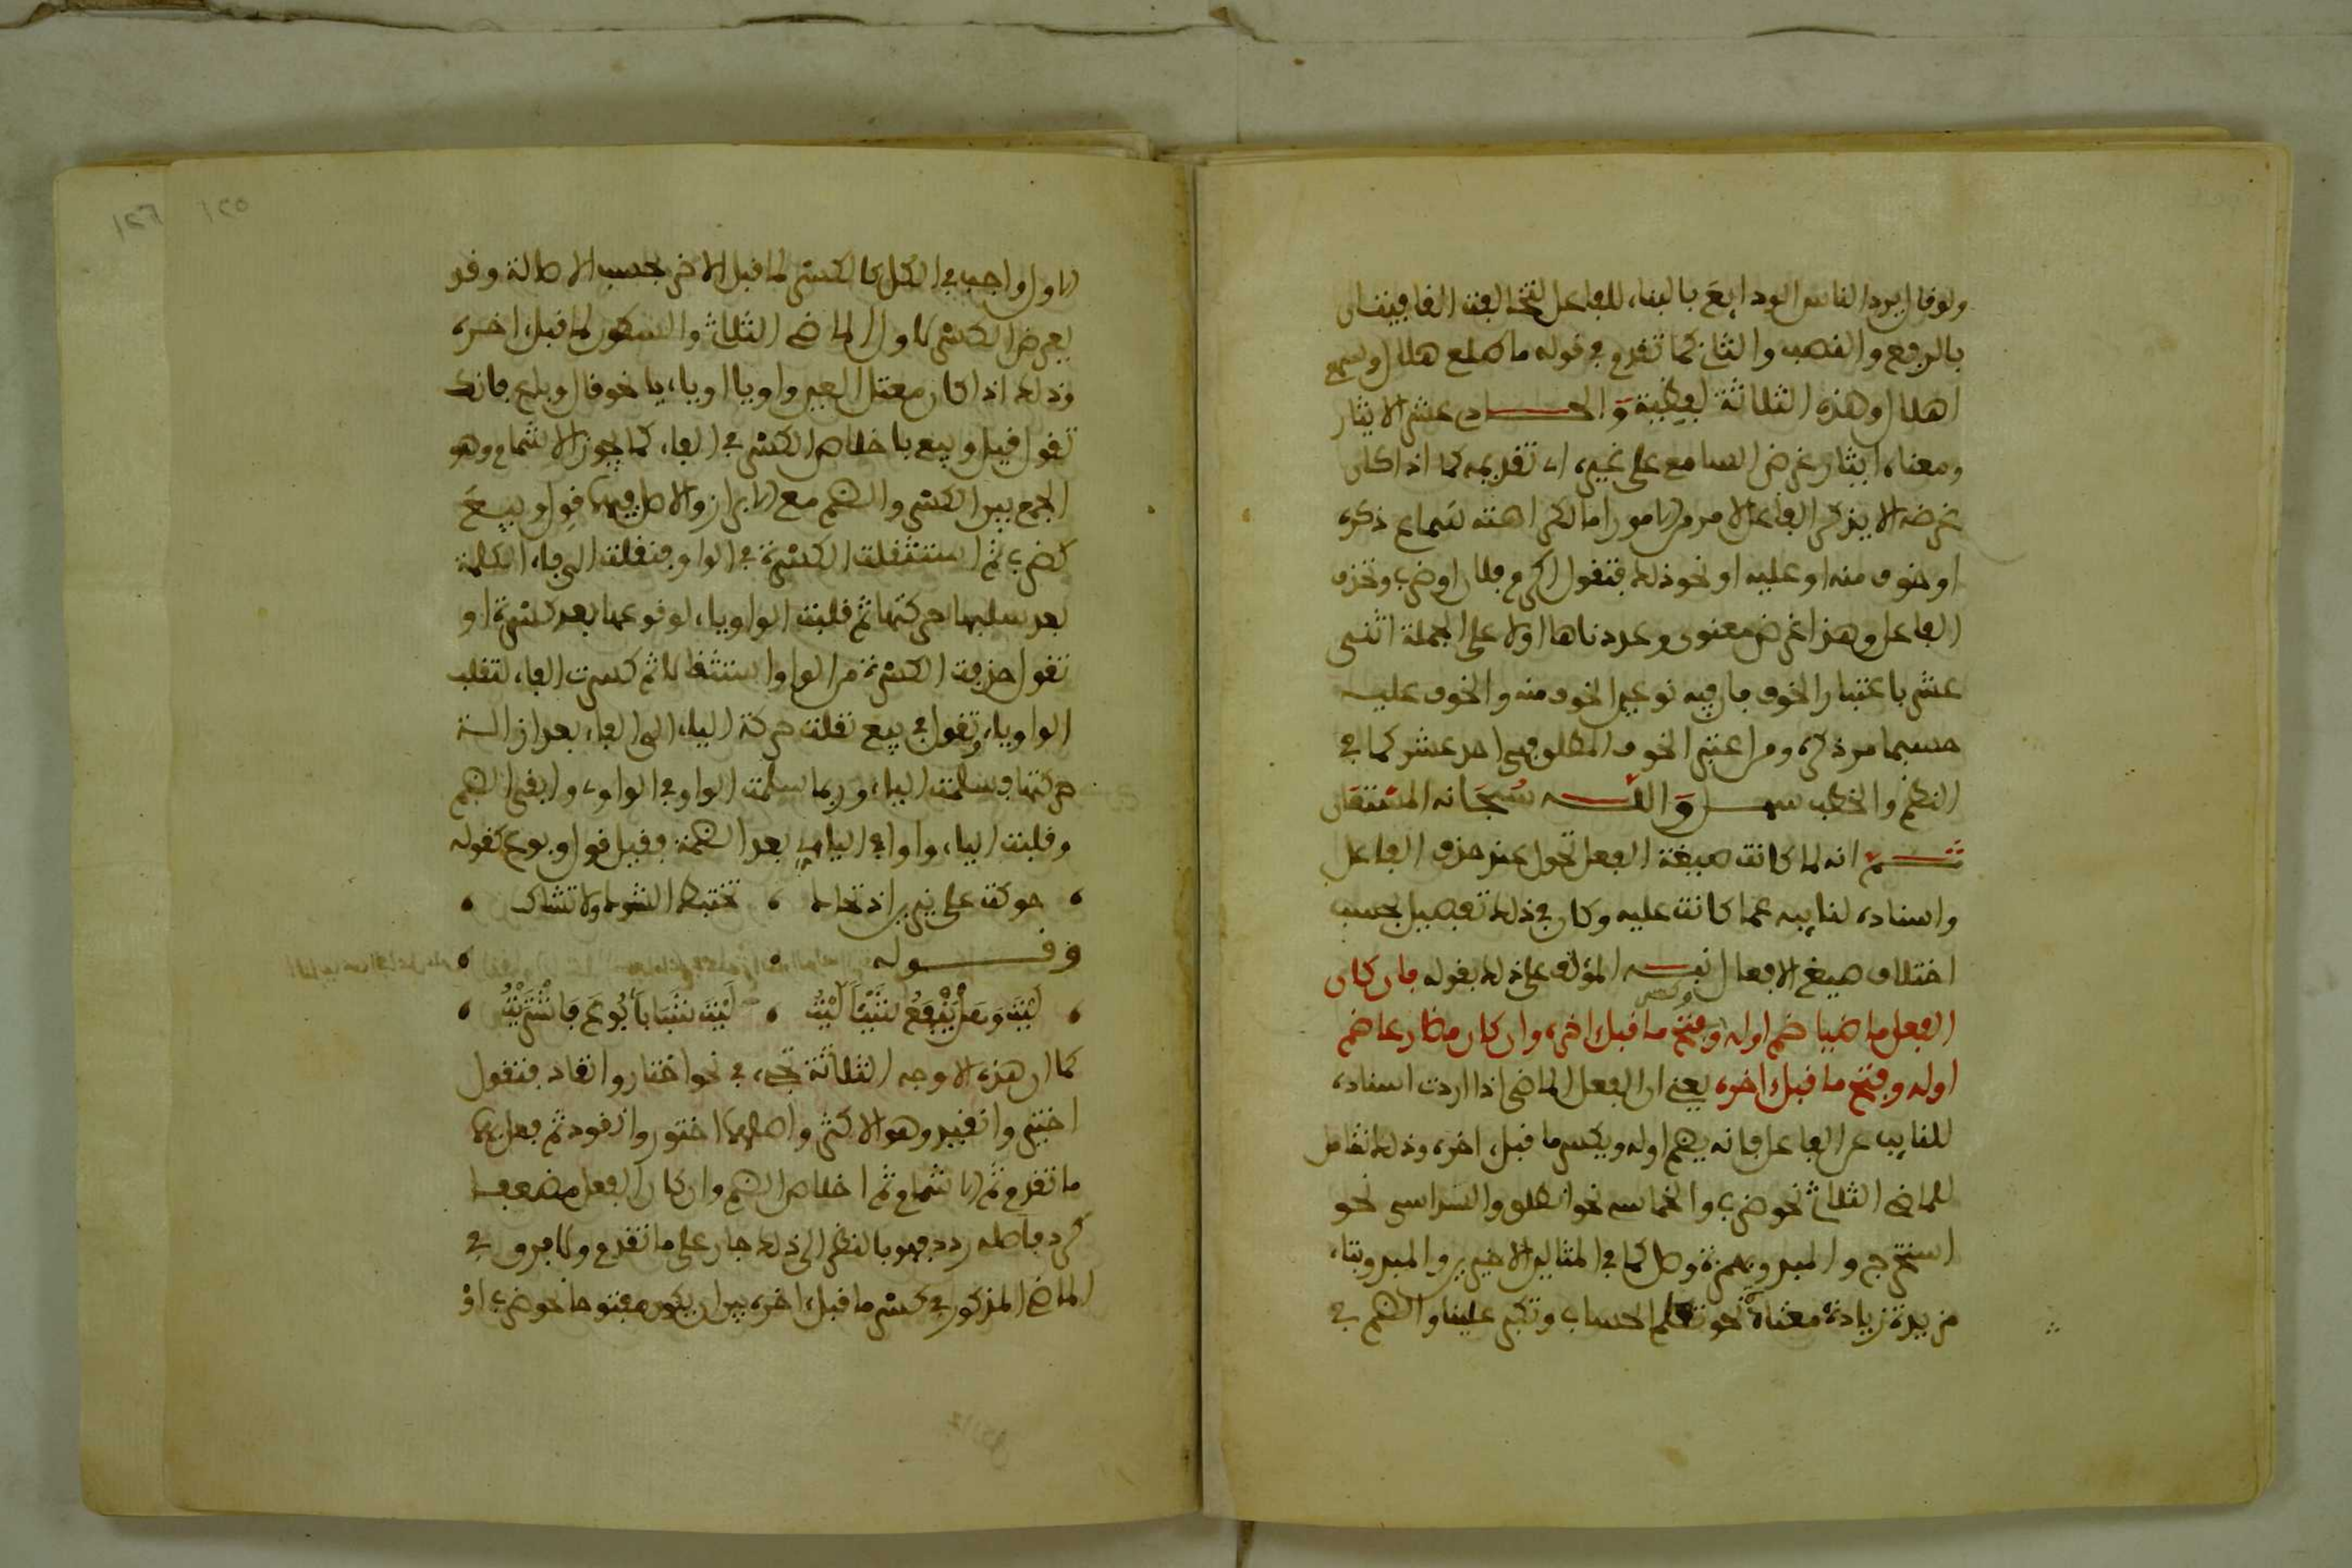 ولو قال يرد الناس الودايع بالبناء للفاعل لتخالفت القافيتان
بالرفع والنصب والثان كما تقدم في قوله ما طلع هلال وسمع
اهلال وهذه الثلاثة لفظية والحادي عشر الايثار
ومعناه ايثار غرض السامع على غيره اي تقديمه كما اذا كان
غرضه الا يذكر الفاعل لامر من الامور اما لكراهته لسماع ذكره
او خوف منه او عليه او نحو ذلك فتقول اكرم فلان او ضرب وتحذف
الفاعل وهذا غرض معنوي وعددناها اولا على الجملة اثنى
عشر باعتبار الخوف فان فيه نوعين الخوف منه والخوف عليه
حسبما مر ذكره ومن اعتبر الخوف المطلق فهي احد عشر كما في
النظم والخطب سهل والله سبحانه المستعان
ثم انه لما كانت صيغة الفعل تحول عند حذف الفاعل
واسناده لنايبه عما كانت عليه وكان في ذلك تفصيل بحسب
اختلاف صيغ الافعال نبه المؤلف على ذلك بقوله فان كان
الفعل ماضيا ضم اوله وفتح وكسر ما قبل اخره وان كان مضارعا ضم
اوله وفتح ما قبل اخره يعني ان الفعل الماضي اذا اردت اسناده
للنايب عن الفاعل فانه يضم اوله ويكسر ما قبل اخره وذلك شامل
للماضي الثلاثي نحو ضرب والخماسي نحو انطلق والسداسي نحو
استخرج والمبدو بهمزة وصل كما في المثالين الاخيرين والمبدو بتاء
مزيدة زيادة معتادة نحو تعلم الحساب وتكبر علينا والضم في
الاول واجب في الكل كالكسر لما قبل الاخر بحسب الاصالة وقد
يعرض الكسر لاول الماضي الثلاثي والسكون لما قبل اخره
وذلك اذا كان معتل العين واويا او يائيا نحو قال وباع فانك
تقول قيل وبيع باخلاص الكسر في الفاء كما يجوز الاشمام وهو
الجمع بين الكسر والضم مع الابراز والاصل فيهما قول وبيع
كضرب ثم استثقلت الكسرة في الواو فنقلت الى فاء الكلمة
بعد سلبها حركتها ثم قلبت الواو ياء لوقوعها بعد كسرة او
تقول حذفت الكسرة من الواو استثقالا ثم كسرت الفاء لتقلب
الواو ياء وتقول في بيع نقلت حركة الياء الى الفاء بعد ازالة
حركتها فسلمت الياء وربما سلمت الواو في الواوي وابقي الضم
وقلبت الياء واوا في اليائي بعد الضمة فقيل قول وبوع كقوله
حوكت على نيرين اذ تحاك تختبط الشوك ولا تشاك
وقوله
ليت وهل ينفع شيئا ليت ليت شبابا بوع فاشتريت
كما ان هذه الاوجه الثلاثة تجري في نحو اختار وانقاد فتقول
اختير وانقيد وهو الاكثر واصلهما اختور وانقود ثم فعل بهما
ما تقدم ثم الاشمام ثم اخلاص الضم وان كان الفعل مضعفا
كرد فاصله ردد فهو بالنظر الى ذلك جار على ما تقدم ولا فرق في
الماضي المذكور في كسر ما قبل اخره بين ان يكون مفتوحا نحو ضرب او